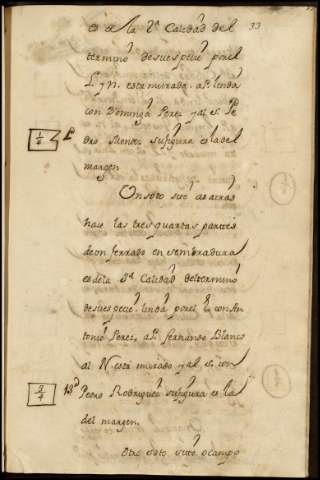 es de la 2ª Calidad del 33
termino de su espeçie por el
L. y N. esta murada a P. linda
con Dominga Perez y al S. Pe
dro Benito su figura es la del
margen
Un soto sito as atras
haze las tres quartas partes
de un ferrado en sembradura
es de la 3ª Calidad del termino
de su espeçie linda por el L. con An
tonio Perez, a P. fernando Blanco
al N. esta murado y al S. con
Pedro Rodriguez su figura es la
del margen.
Otro soto sito ô campo